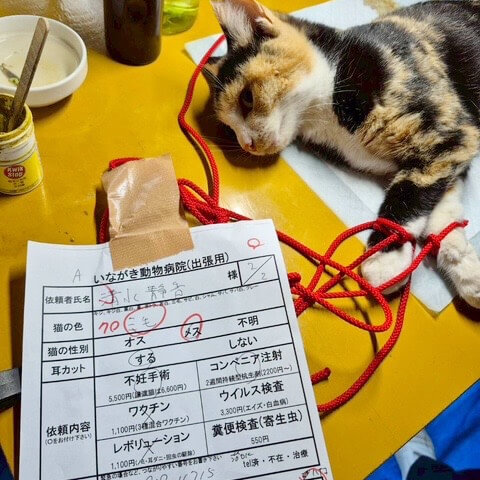 Kwik
Stop
A いながき動物病院(出張用) ♀
依頼者氏名 様 2/2
猫の色 クロ ミケ
猫の性別 オス メス 不明
耳カット する しない
依頼内容
(○をお付け下さい)
不妊手術
5,500円(譲渡猫は6,600円)
コンベニア注射
2週間持続型抗生剤(2200円~)
ワクチン
1,100円(3種混合ワクチン)
ウイルス検査
3,300円(エイズ・白血病)
レボリューション
1,100円(ノミ・耳ダニ・回虫の駆除)
糞便検査(寄生虫)
550円
tel済・不在・治療